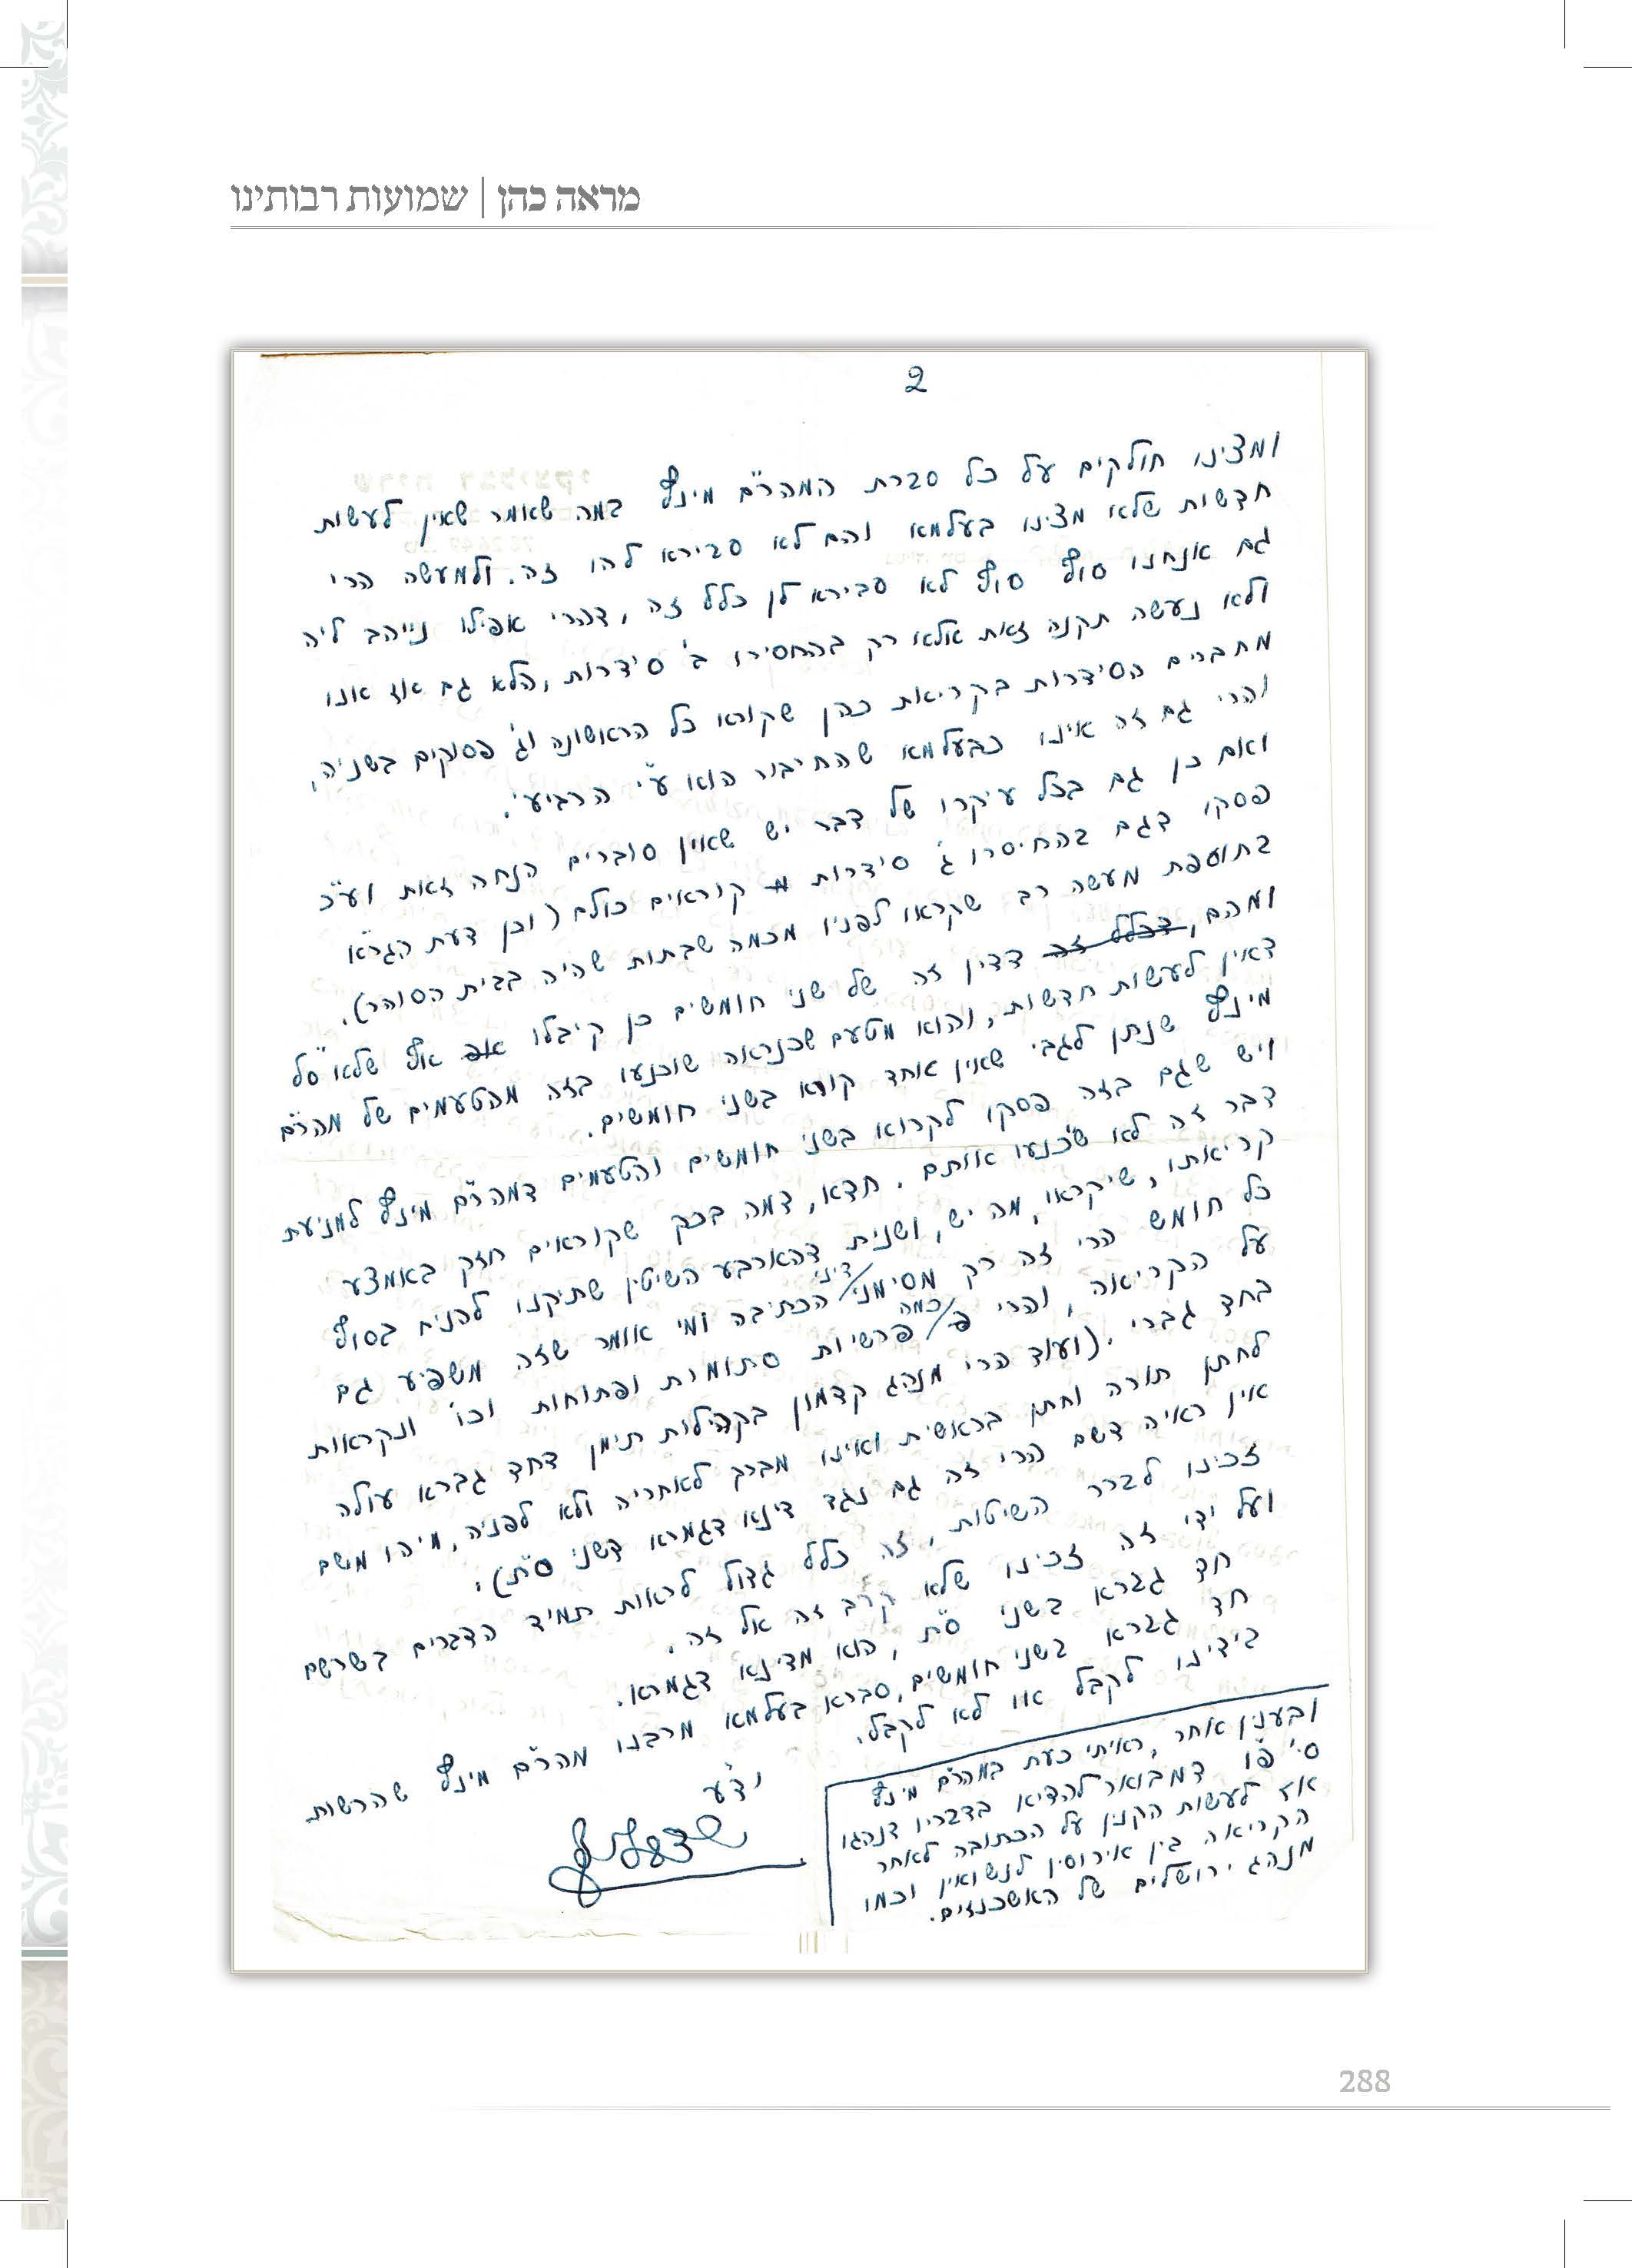 מראה כהן | שמועות רבותינו
2
ומצינו חולקים על כל סברת המהר"ם מינץ במה שאומר שאין לעשות
חדשות שלא מצינו בעלמא והם לא סבירא להו זה. ולמעשה הרי
גם אנחנו סוף סוף לא סבירא לן כלל זה, דהרי אפילו נייהב ליה
ולא נעשה תקנה זאת אלא רק בהחסירו ב' סידרות, הלא גם אז אנו
מחברים הסידרות בקריאת כהן שקורא כל הראשונה וג' פסוקים בשניה,
והרי גם זה אינו כבעלמא שהחיבור הוא ע"י הרביעי.
ואם כן גם בכל עיקרו של דבר יש שאין סוברים הנחה זאת וע"כ
פסקו דגם בהחיסרו ג' סידרות קוראים כולם (וכן דעת הגר"א
בתוספת מעשה רב שקראו לפניו מכמה שבתות שהיה בבית הסוהר).
ומהם, דכלל זה דדין זה של שני חומשים כן קיבלו אף שלא ס"ל
דאין לעשות חדשות, והוא מטעם שכנראה שוכנעו בזה מהטעמים של מהר"ם
מינץ שנתן לגבי שאין אחד קורא בשני חומשים.
ויש שגם בזה פסקו לקרוא בשני חומשים והטעמים דמהר"ם מינץ למניעת
דבר זה לא שכנעו אותם. חדא, דמה בכך שקוראים חזק באמצע
קריאתו, שיקראו, מה יש, ושנית דהארבע השיטין שתיקנו להניח בסוף
כל חומש הרי זה רק מסימני/דיני הכתיבה ומי אומר שזה משפיע גם
על הקריאה, והרי כמה פרשיות סתומות ופתוחות וכו' ונקראות
בחד גברי. (ועוד הרי מנהג קדמון בקהילות תימן דחד גברא עולה
לחתן תורה וחתן בראשית ואינו מברך לאחריה ולא לפניה, מיהו משם
אין ראיה דשם הרי זה גם נגד דינא דגמרא דשני ס"ת).
זכינו לברר השיטות, זה כלל גדול לראות תמיד הדברים בשרשם
ועל ידי זה זכינו שלא קרב זה אל זה.
חד גברא בשני ס"ת, הוא מדינא דגמרא.
חד גברא בשני חומשים, סברא בעלמא מרבנו מהר"ם מינץ שהרשות
בידינו לקבל או לא לקבל.
וצ"ע
ובענין אחר, ראיתי כעת במהר"ם מינץ
סי' פ"ו דמבואר להדיא בדבריו דנהגו
אז לעשות הקנין על הכתובה לאחר
הקריאה בין אירוסין לנשואין וכמו
מנהג ירושלים של האשכנזים.
288